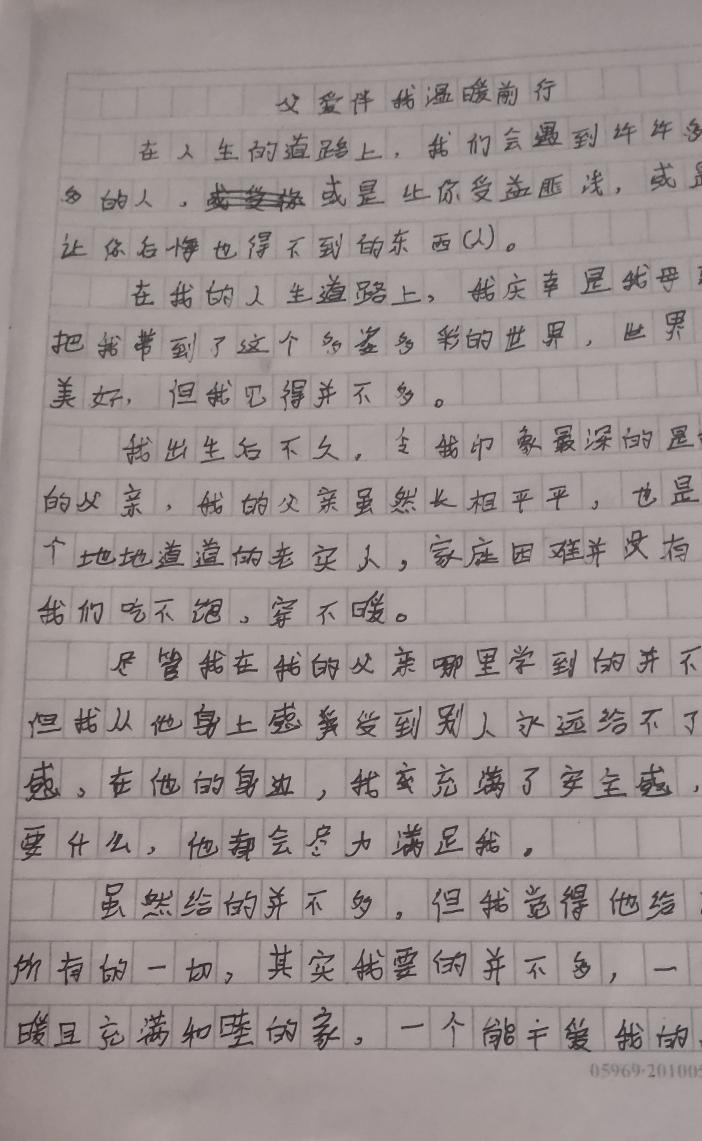 父爱伴我温暖前行
在人生的道路上，我们会遇到许许多
多的人，或是让你受益匪浅，或是
让你后悔也得不到的东西(人)。
在我的人生道路上，我庆幸是我母亲
把我带到了这个多姿多彩的世界，世界
美好，但我见得并不多。
我出生后不久，令我印象最深的是
的父亲，我的父亲虽然长相平平，也是
个地地道道的老实人，家庭困难并没有
我们吃不饱、穿不暖。
尽管我在我的父亲哪里学到的并不
但我从他身上感受到别人永远给不了
感，在他的身边，我充满了安全感，
要什么，他都会尽力满足我。
虽然给的并不多，但我觉得他给
所有的一切，其实我要的并不多，一
暖且充满和睦的家，一个能干爱我的
05969·201005